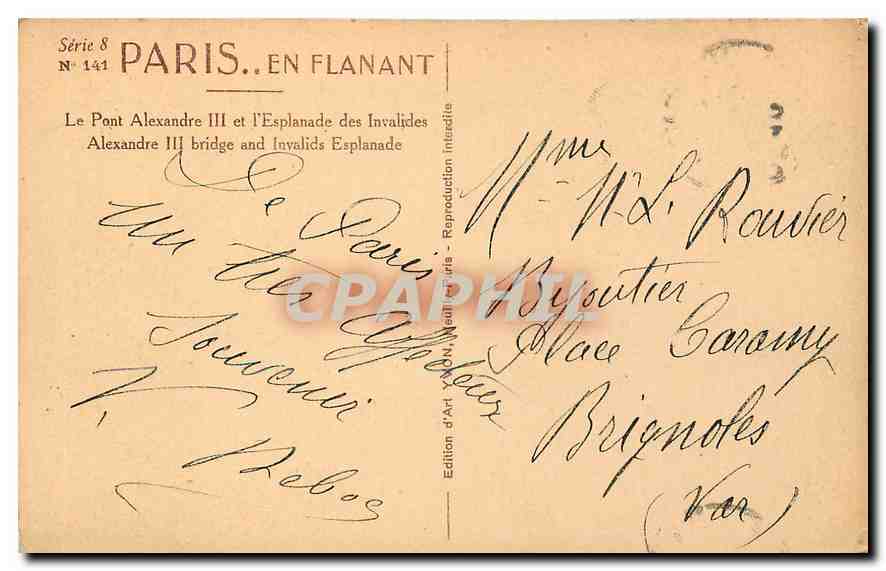 Série 8
N° 141 PARIS.. EN FLANANT
Le Pont Alexandre III et l'Esplanade des Invalides
Alexandre III bridge and Invalids Esplanade
De Paris
un très Affectueux
Souvenir
V. Reboa
Edition d'Art YVON, Neuilly-Paris - Reproduction Interdite
Mme M. L. Rouvier
Bijoutier
Place Caramy
Brignoles
(Var)
CPAPHIL